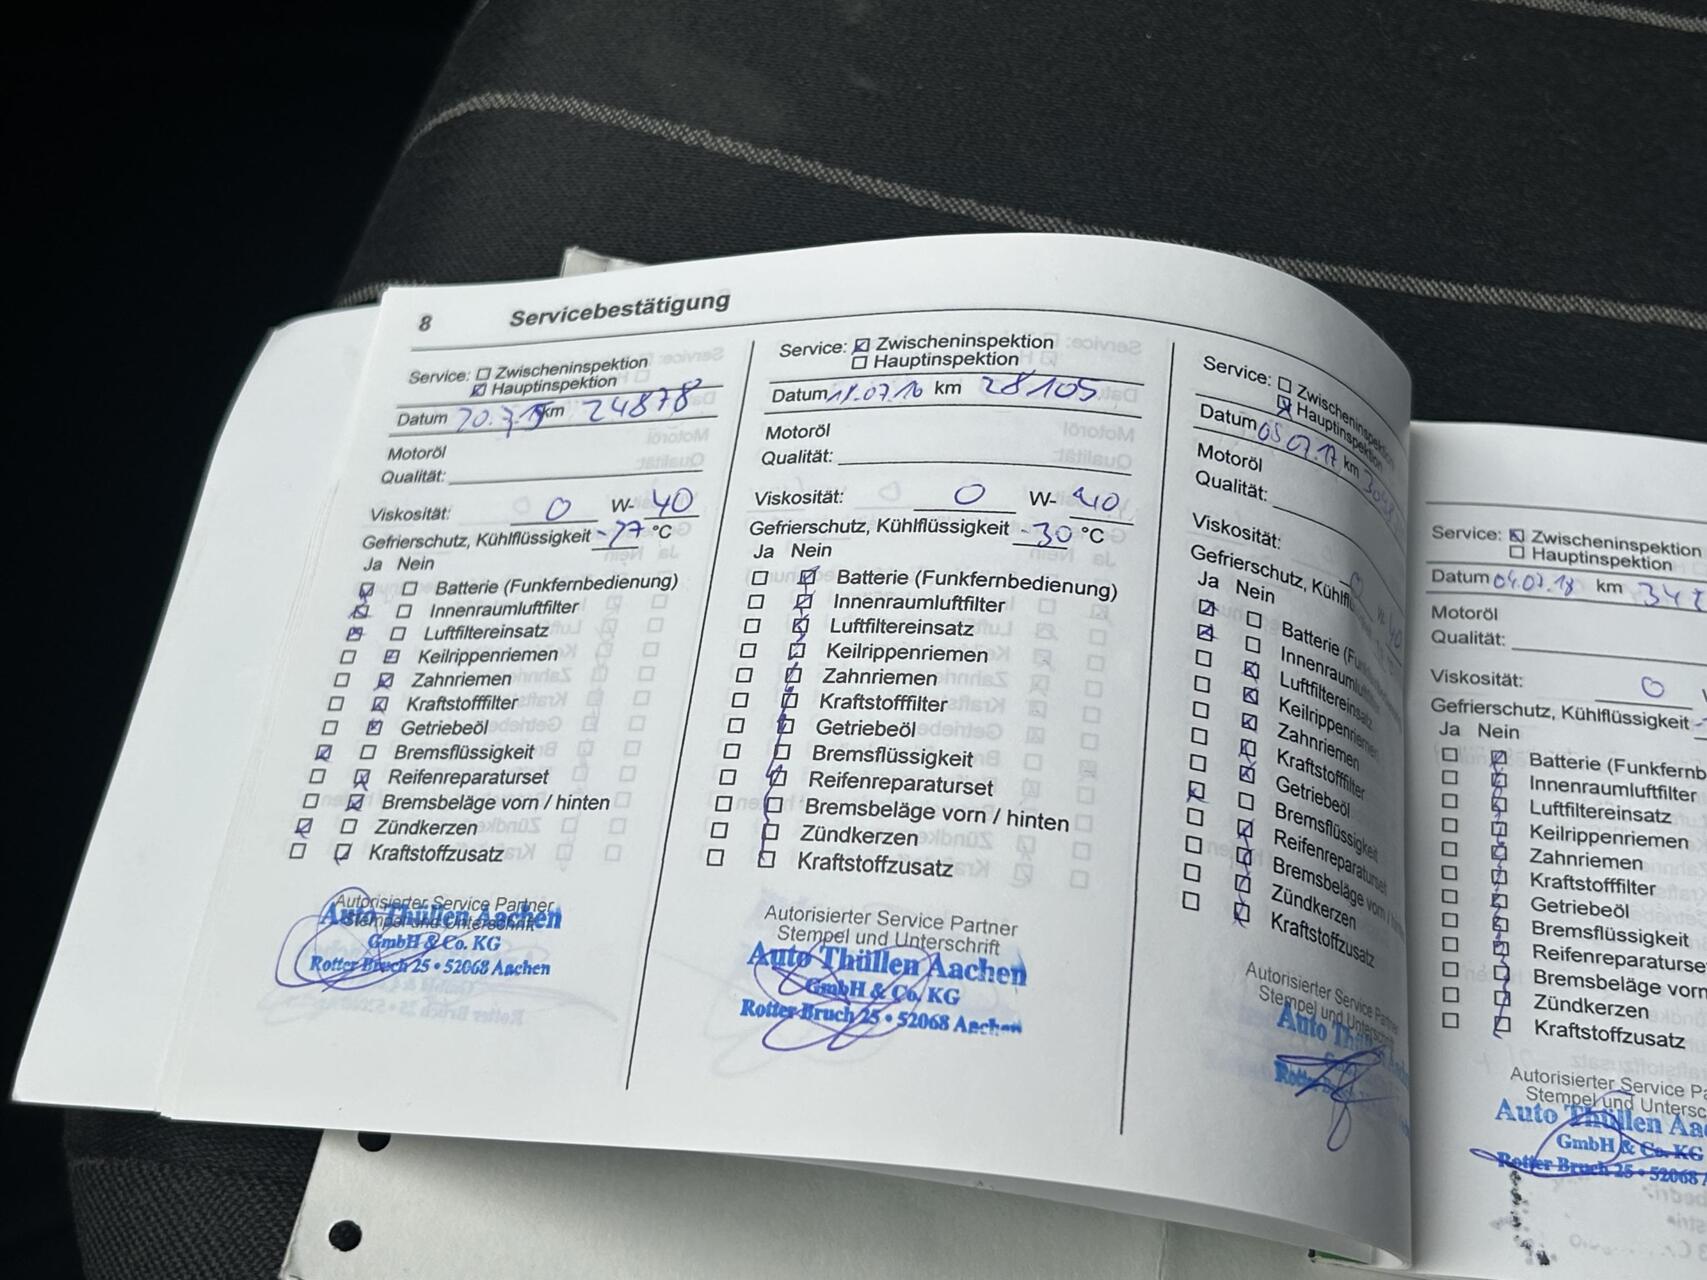 8 Servicebestätigung
Service: Zwischeninspektion
Hauptinspektion
Datum 20.7.15 km 24878
Motoröl
Qualität:
Viskosität: 0 W- 40
Gefrierschutz, Kühlflüssigkeit -27 °C
Ja Nein
Batterie (Funkfernbedienung)
Innenraumluftfilter
Luftfiltereinsatz
Keilrippenriemen
Zahnriemen
Kraftstofffilter
Getriebeöl
Bremsflüssigkeit
Reifenreparaturset
Bremsbeläge vorn / hinten
Zündkerzen
Kraftstoffzusatz
Autorisierter Service Partner
Stempel und Unterschrift
Auto Thüllen Aachen
GmbH & Co. KG
Rotter Bruch 25 • 52068 Aachen
Service: Zwischeninspektion
Hauptinspektion
Datum 18.07.16 km 28105
Motoröl
Qualität:
Viskosität: 0 W- 40
Gefrierschutz, Kühlflüssigkeit -30 °C
Ja Nein
Batterie (Funkfernbedienung)
Innenraumluftfilter
Luftfiltereinsatz
Keilrippenriemen
Zahnriemen
Kraftstofffilter
Getriebeöl
Bremsflüssigkeit
Reifenreparaturset
Bremsbeläge vorn / hinten
Zündkerzen
Kraftstoffzusatz
Autorisierter Service Partner
Stempel und Unterschrift
Auto Thüllen Aachen
GmbH & Co. KG
Rotter Bruch 25 • 52068 Aachen
Service: Zwischeninspektion
Hauptinspektion
Datum 05.07.17 km
Motoröl
Qualität:
Viskosität:
Gefrierschutz, Kühlfl
Ja Nein
Batterie (Funk
Innenraumluftfilter
Luftfiltereinsatz
Keilrippenriemen
Zahnriemen
Kraftstofffilter
Getriebeöl
Bremsflüssigkeit
Reifenreparaturset
Bremsbeläge vorn /
Zündkerzen
Kraftstoffzusatz
Autorisierter Service Partner
Stempel und Unterschrift
Auto
Rotter
Service: Zwischeninspektion
Hauptinspektion
Datum 04.07.18 km
Motoröl
Qualität:
Viskosität: 0
Gefrierschutz, Kühlflüssigkeit
Ja Nein
Batterie (Funkfernb
Innenraumluftfilter
Luftfiltereinsatz
Keilrippenriemen
Zahnriemen
Kraftstofffilter
Getriebeöl
Bremsflüssigkeit
Reifenreparaturse
Bremsbeläge vorn
Zündkerzen
Kraftstoffzusatz
Autorisierter Service Pa
Stempel und Untersc
Auto Thüllen Aa
GmbH & Co. KG
Rotter Bruch 25 • 52068 A